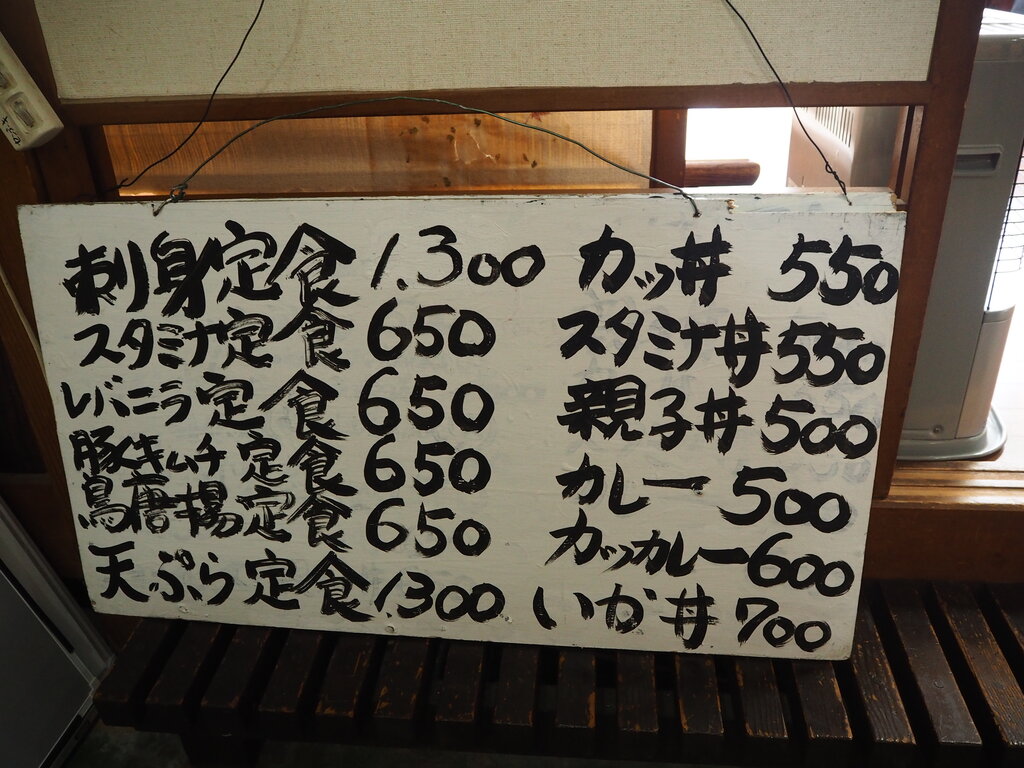 刺身定食 1.300
スタミナ定食 650
レバニラ定食 650
豚キムチ定食 650
鳥唐揚定食 650
天ぷら定食 1300
カッ丼 550
スタミナ丼 550
親子丼 500
カレー 500
カッカレー 600
いか丼 700